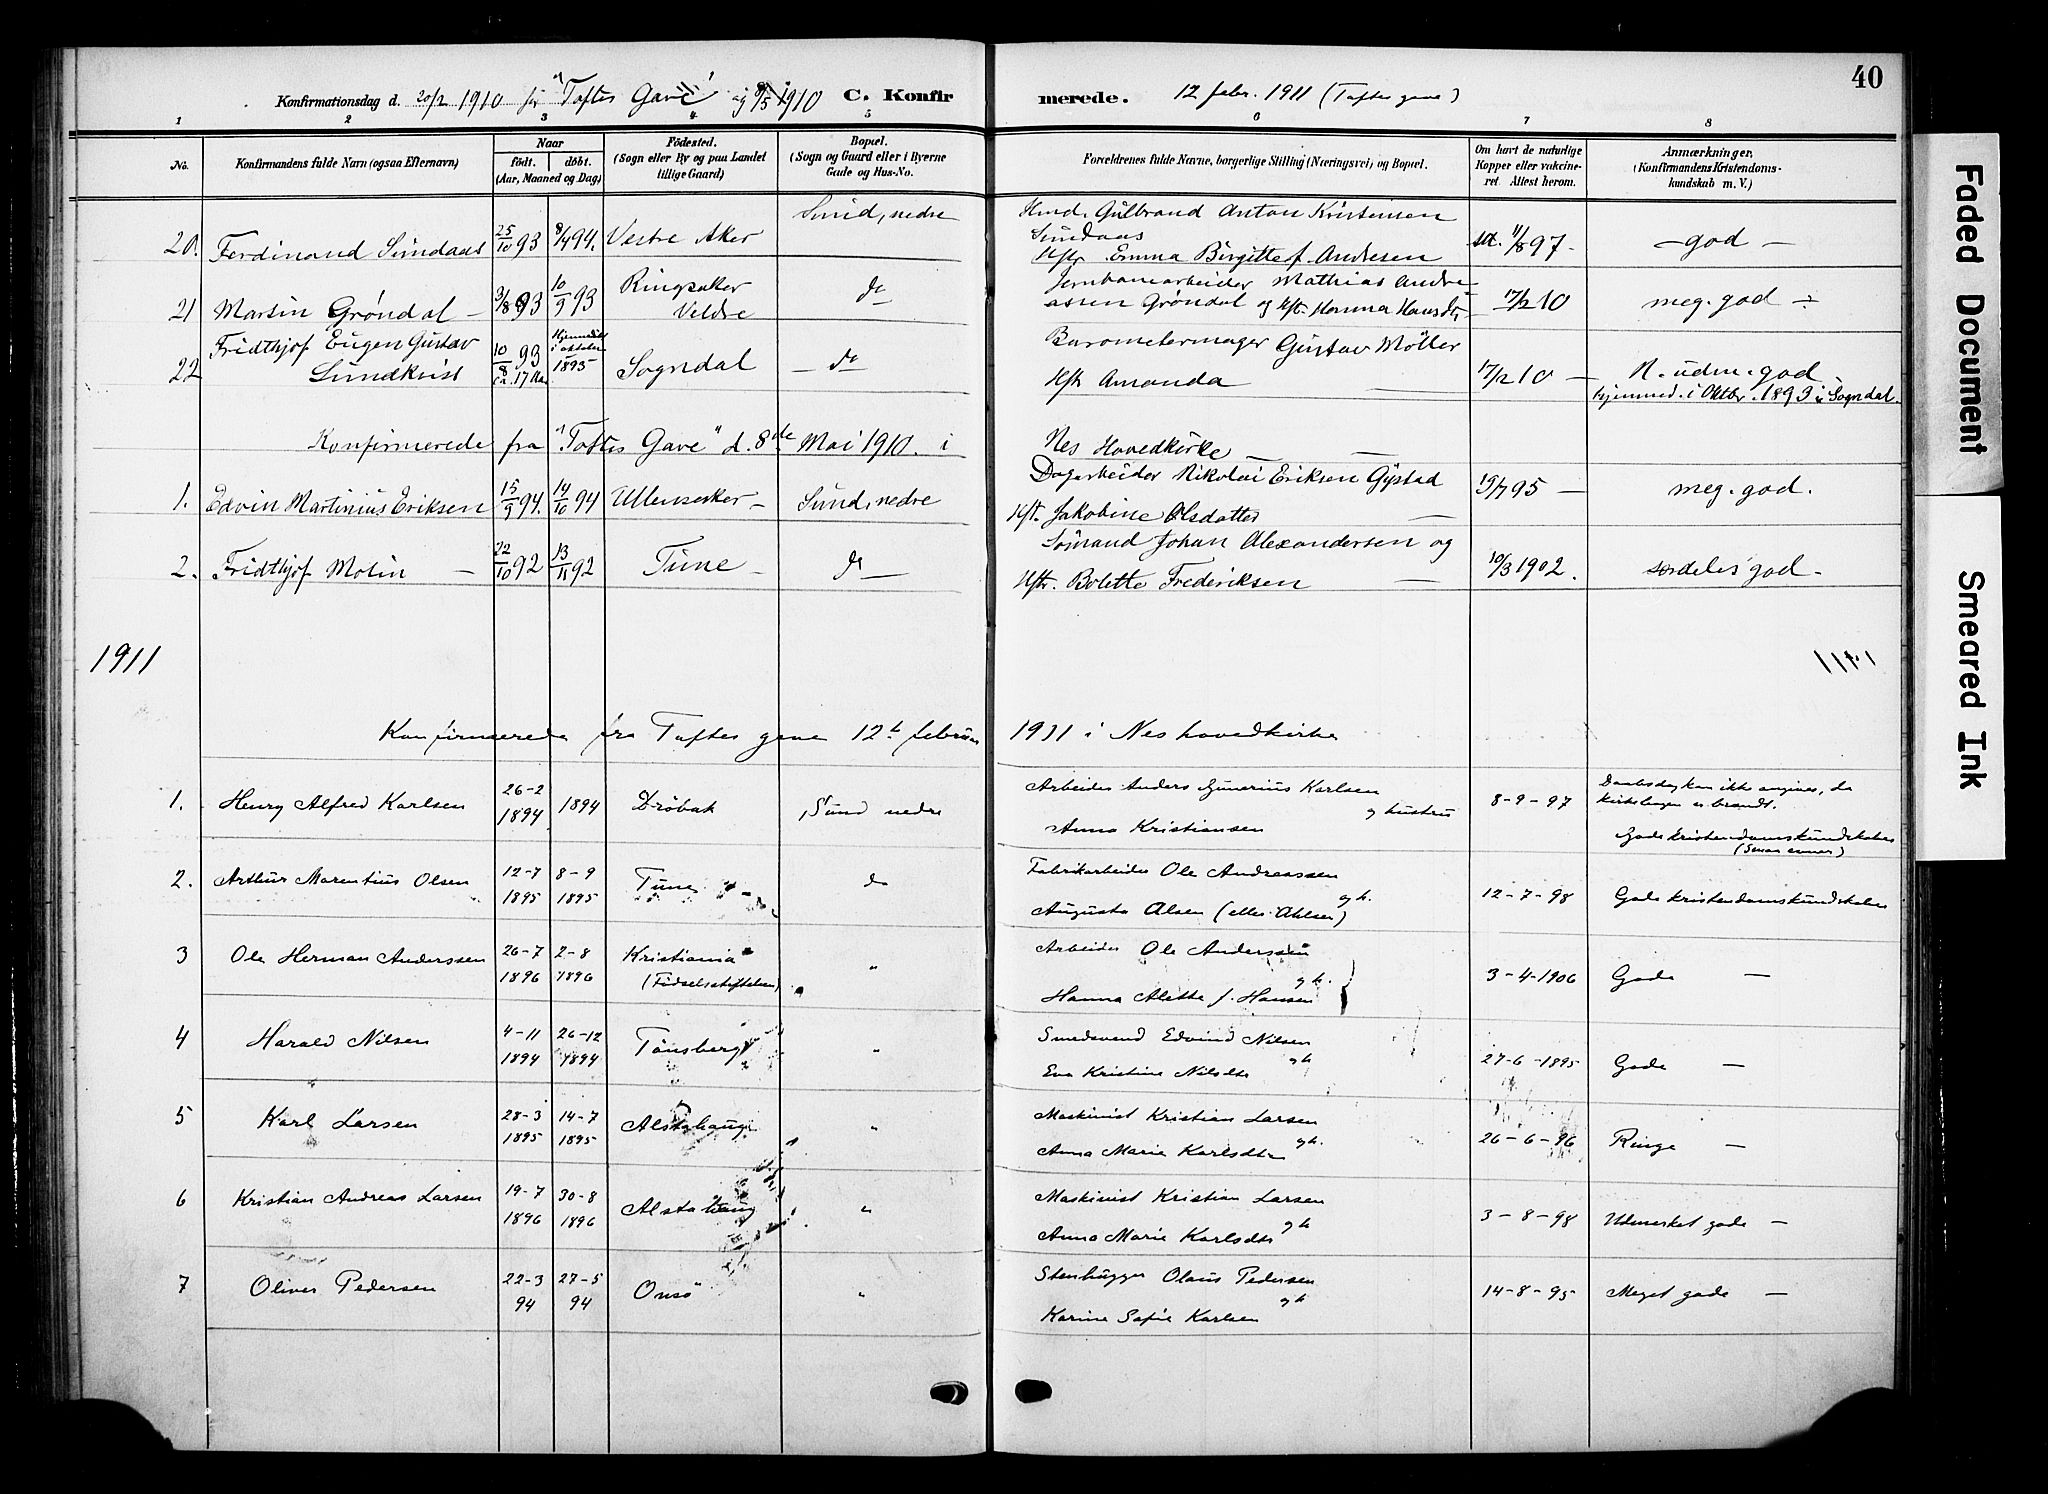 40
Konfirmationsdag d. 20/2 1910 for "Toftes Gave" og 8/5 1910 C. Konfirmerede. 12 febr. 1911 (Toftes gave)
1 2 3 4 5 6 7 8
No. Konfirmandens fulde Navn (ogsaa Efternavn) Naar født. døbt. (Aar, Maaned og Dag) Fødested. (Sogn eller By og paa Landet tillige Gaard) Bopæl. (Sogn og Gaard eller i Byerne Gade og Hus-No. Forældrenes fulde Navne, borgerlige Stilling (Næringsvei) og Bopæl. Om havt de naturlige Kopper eller vakcineret. Attest herom. Anmærkninger. (Konfirmandens Kristendomskundskab m. V.)
20. Ferdinand Sundaas 25/10 93 8/4 94. Vestre Aker Sund, nedre Gulbrand Anton Kristensen Sundaas Hstr Emma Birgitte f. Andresen 11/8 97 - - god -
21 Martin Grøndal - 3/8 93 10/9 93 Ringsaker Veldre do Jernbanearbeider Mathias Andreassen Grøndal og Hst. Hanna Hansdt. 17/2 10 meg. god -
22 Fridthjof Eugen Gustav Lundkvist 10/8 93 Hjemmedøbt i oktober 1895 Sogndal - do Barometermager Gustav Møller Hstr Amanda - 17/2 10 - N. udm. god - hjemmed. i Oktbr. 1893 i Sogndal.
Konfirmerede fra "Toftes Gave" d. 8de Mai 1910. i Nes Hovedkirke - -
1. Edvin Martinius Eriksen 15/9 94. 14/10 94 Ullensaker - Sund, nedre Dagarbeider Nikolai Eriksen Gystad Hst. Jakobine Olsdatter - 19/7 95 - meg. god.
2. Fridthjof Molin - 22/10 92 13/11 92 Tune - do - Sømand Johan Alexandersen og Hstr. Bolette Frederiksen - 10/3 1902. særdeles god -
1911
Konfirmerede fra Toftes gave 12te februar 1911 i Nes hovedkirke
1. Henry Alfred Karlsen 26-2 1894 1894 Drøbak Sund nedre Arbeider Anders Gunerius Karlsen og hustru Anna Kristiansen 8-9-97 Daabsdag kan ikke angives, da kirkebogen er brændt. Gode kristendomskundskaber
2. Arthur Marentius Olsen 12-7 1895 8-9 1895 Tune do Fabrikarbeider Ole Andreassen og h. Augusta Olsen (eller Ohlsen) 12-7-98 Gode kristendomskundskaber
3 Ole Herman Anderssen 26-7 1896 2-8 1896 Kristiania (Fødselsstiftelsen) " Arbeider Ole Anderssen og h. Hanna Alette f. Hansen 3-4-1906 Gode -
4 Harald Nilsen 4-11 1894 26-12 1894 Tønsberg " Smedsvend Edvind Nilsen og h Eva Kristine Nilsdtr 27-6-1895 Gode -
5 Karl Larsen 28-3 1895 14-7 1895 Alstahaug " Maskinist Kristian Larsen og h. Anna Marie Karlsdtr 26-6-96 Ringe -
6 Kristian Andreas Larsen 19-7 1896 30-8 1896 Alstahaug " Maskinist Kristian Larsen og h Anna Marie Karlsdtr 3-8-98 Udmerket gode -
7 Oliver Pedersen 22-3 94 27-5 94 Onsø " Stenhugger Olaus Pedersen og h Karine Sofie Karlsen 14-8-95 Meget gode -
Faded Document
Smeared Ink